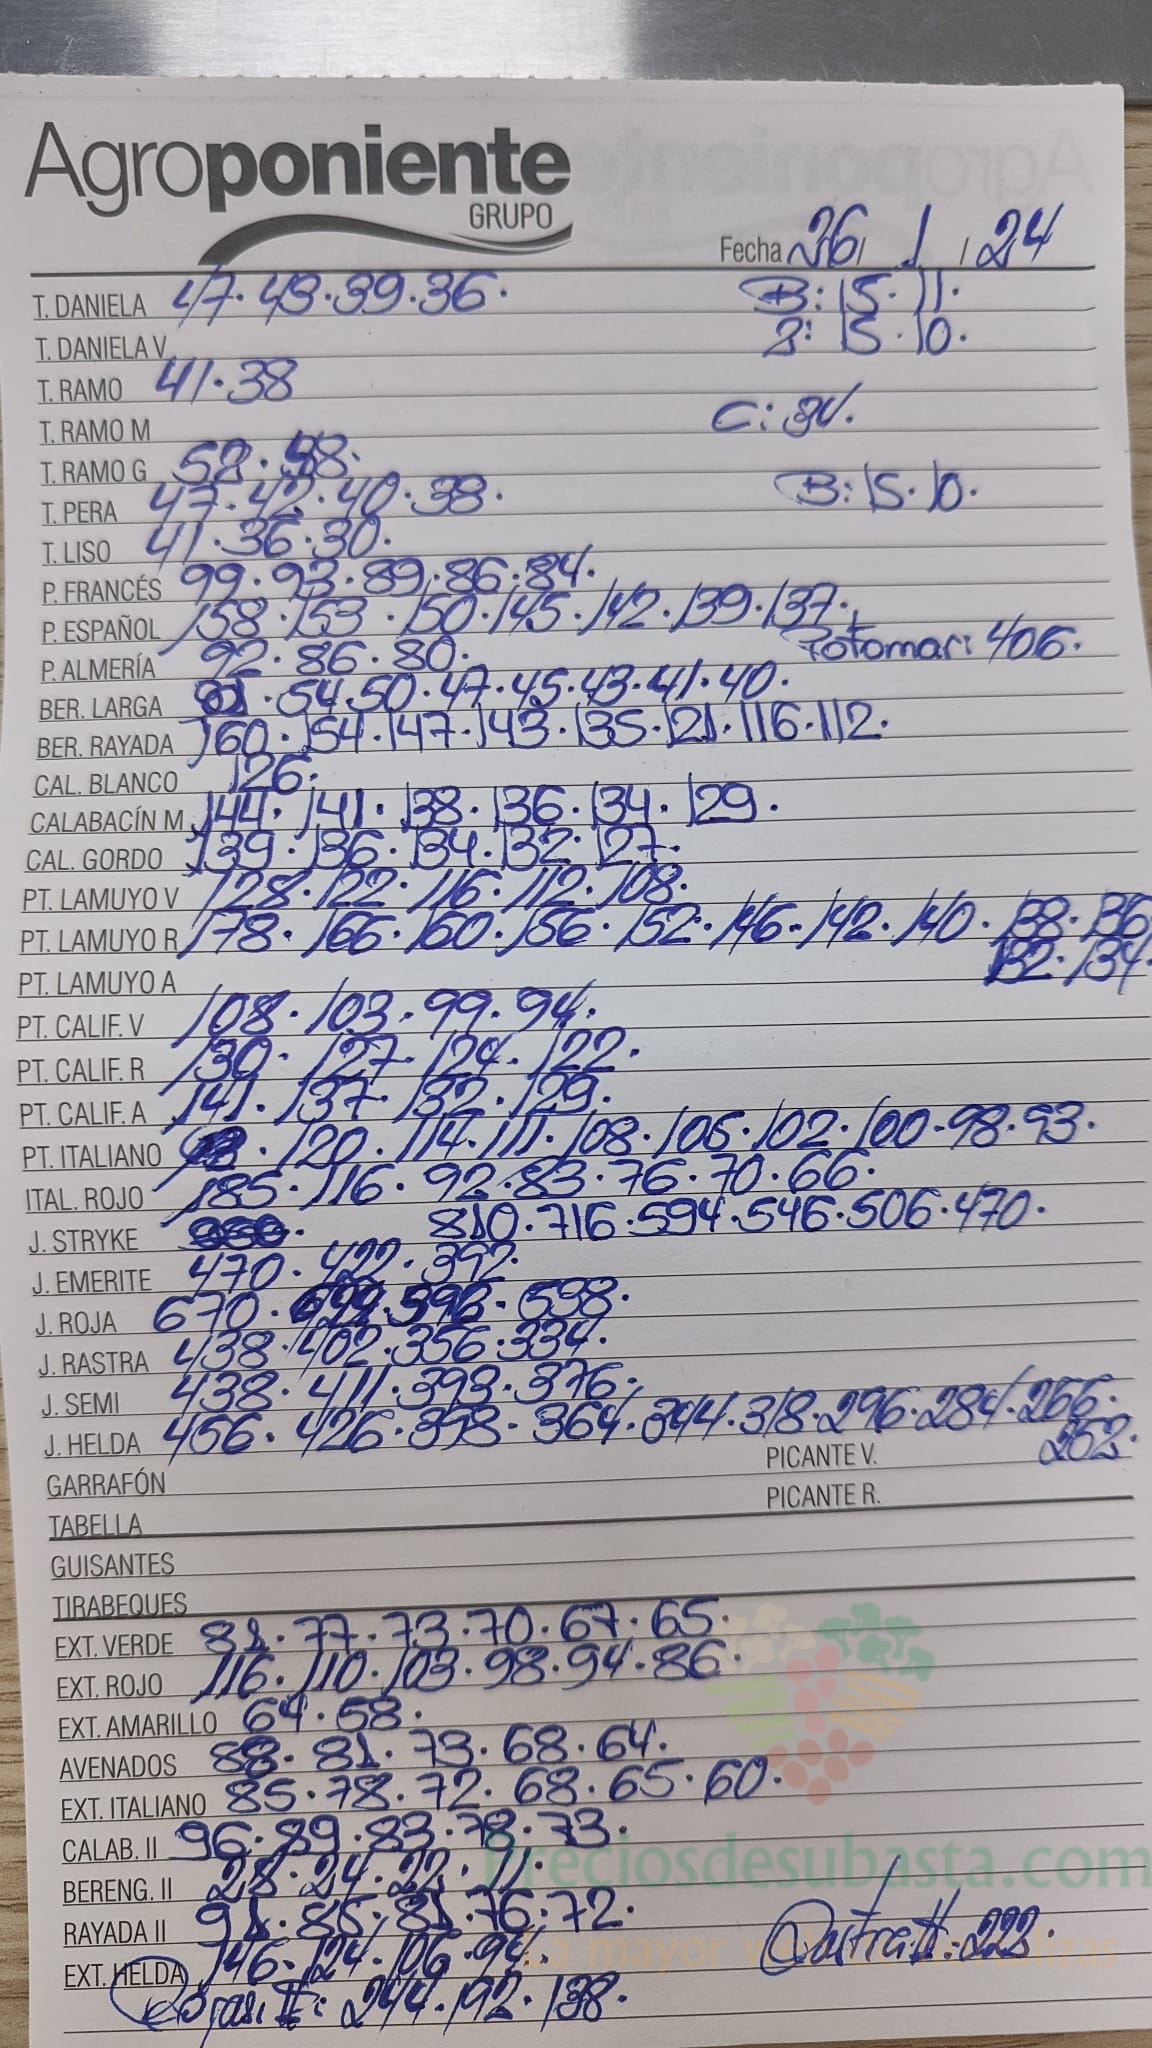 Agroponiente
GRUPO
Fecha 26/ 1 / 24
T. DANIELA 47. 43. 39. 36. B: 15. 11.
T. DANIELA V 2: 15. 10.
T. RAMO 41. 38
T. RAMO M C: 34.
T. RAMO G 52. 48.
T. PERA 47. 42. 40. 38. B: 15. 10.
T. LISO 41. 36. 30.
P. FRANCÉS 99. 93. 89. 86. 84.
P. ESPAÑOL 158. 153. 150. 145. 142. 139. 137.
P. ALMERÍA 92. 86. 80. Potomar: 406.
BER. LARGA 54. 50. 47. 45. 43. 41. 40.
BER. RAYADA 160. 154. 147. 143. 135. 121. 116. 112.
CAL. BLANCO 126.
CALABACÍN M 144. 141. 138. 136. 134. 129.
CAL. GORDO 139. 136. 134. 132. 127.
PT. LAMUYO V 128. 122. 116. 112. 108.
PT. LAMUYO R 178. 166. 160. 156. 152. 146. 142. 140. 138. 136
132. 134.
PT. LAMUYO A
PT. CALIF. V 108. 103. 99. 94.
PT. CALIF. R 130. 127. 124. 122.
PT. CALIF. A 141. 137. 132. 129.
PT. ITALIANO 120. 114. 111. 108. 105. 102. 100. 98. 93.
ITAL. ROJO 185. 116. 92. 83. 76. 70. 66.
J. STRYKE 810. 716. 594. 546. 506. 470.
J. EMERITE 470. 422. 392.
J. ROJA 670. 538.
J. RASTRA 438. 402. 356. 334.
J. SEMI 438. 411. 393. 376.
J. HELDA 456. 426. 398. 364. 344. 318. 296. 284. 266.
252.
GARRAFÓN PICANTE V.
TABELLA PICANTE R.
GUISANTES
TIRABEQUES
EXT. VERDE 81. 77. 73. 70. 67. 65.
EXT. ROJO 116. 110. 103. 98. 94. 86.
EXT. AMARILLO 64. 58.
AVENADOS 88. 81. 73. 68. 64.
EXT. ITALIANO 85. 78. 72. 68. 65. 60.
CALAB. II 96. 89. 83. 78. 73.
Preciosdesubasta.com
BERENG. II 28. 24. 22. 21.
RAYADA II 91. 85. 81. 76. 72.
EXT. HELDA 146. 124. 106. 94. 222.
II: 244. 192. 138.